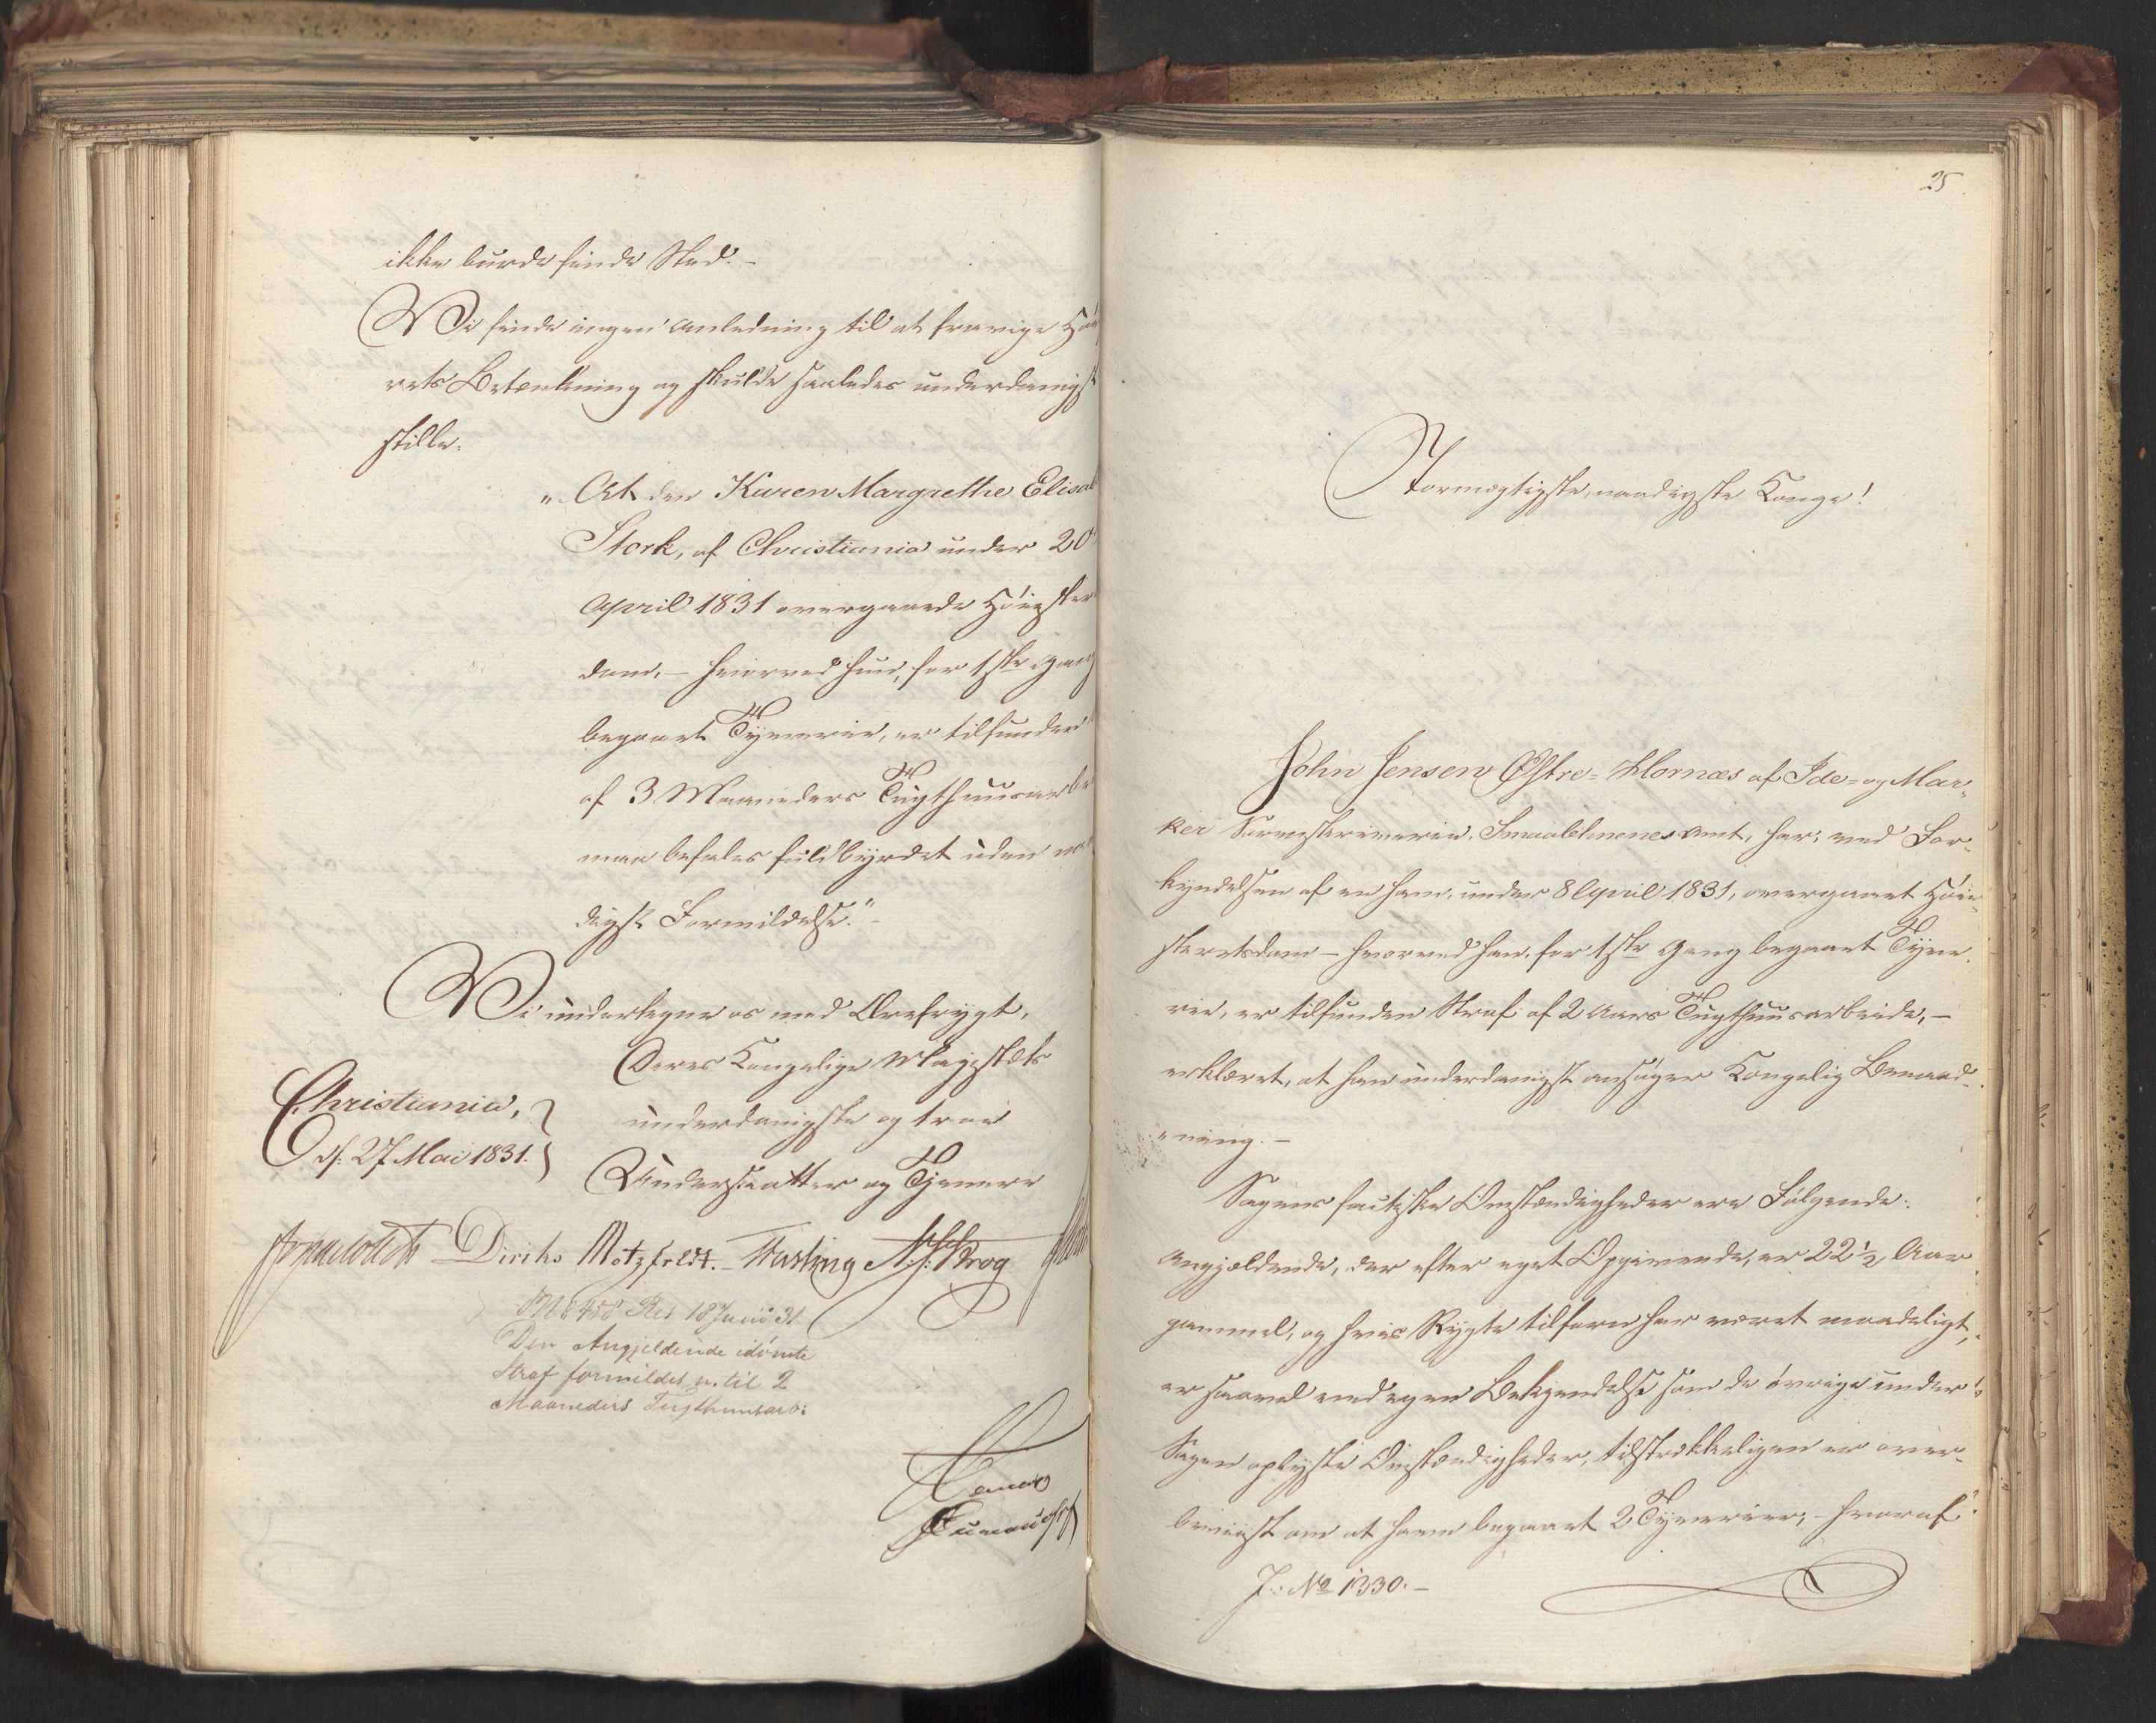 ikke burde finde Sted.-
Vi finde ingen Anledning til at fravige Høi
rets Betænkning og skulde saaledes underdanigst
stille:
"At den Karen Margrethe Elisab
Stork, af Christiania under 20
April 1831 overgaaede Høiester
dom, - hvorved hun, for 1ste Gang
begaaet Tyverie, er tilfunden
af 3 Maaneders Tugthuusarbe
maa befales fuldbyrdet uden naa
digst Formildelse."-
Vi undertegne os med Ærefrygt,
Deres Kongelige Majestæts
underdanigste og troe
Undersaatter og Tjenere
Christiania,
d. 27 Mai 1831.
Diriks Motzfeldt. Fasting N: J: Krog
No 458 Res 18 Junii 31
Den Angjeldende idömte
Straf formildet n. til 2
Maaneders Tugthuusarb:
25.
Stormægtigste, naadigste Konge!
John Jensen Østre-Hornæs af Ide- og Mar-
ker Sorenskriverie, Smaalehnenes Amt, har, ved For-
kyndelsen af en ham, under 8 April 1831, overgaaet Høie-
steretsdom - hvorved han, for 1ste Gang begaaet Tyve-
rie, er tilfunden Straf af 2 Aars Tugthuusarbeide, -
erklæret, at han underdanigst ansøger Kongelig Benaad-
"ning. -
Sagens factiske Omstændigheder ere Følgende:
Angjældende, der efter eget Opgivende, er 22½ Aar
gammel, og hvis Rygte tilforn har været maadeligt,
er saavel ved egen Bekjendelse som de øvrige under
Sagen oplyste Omstændigheder, tilstrækkeligen er over-
beviist om at have begaaet 2 Tyverier; - hvoraf
J: No 1330.-